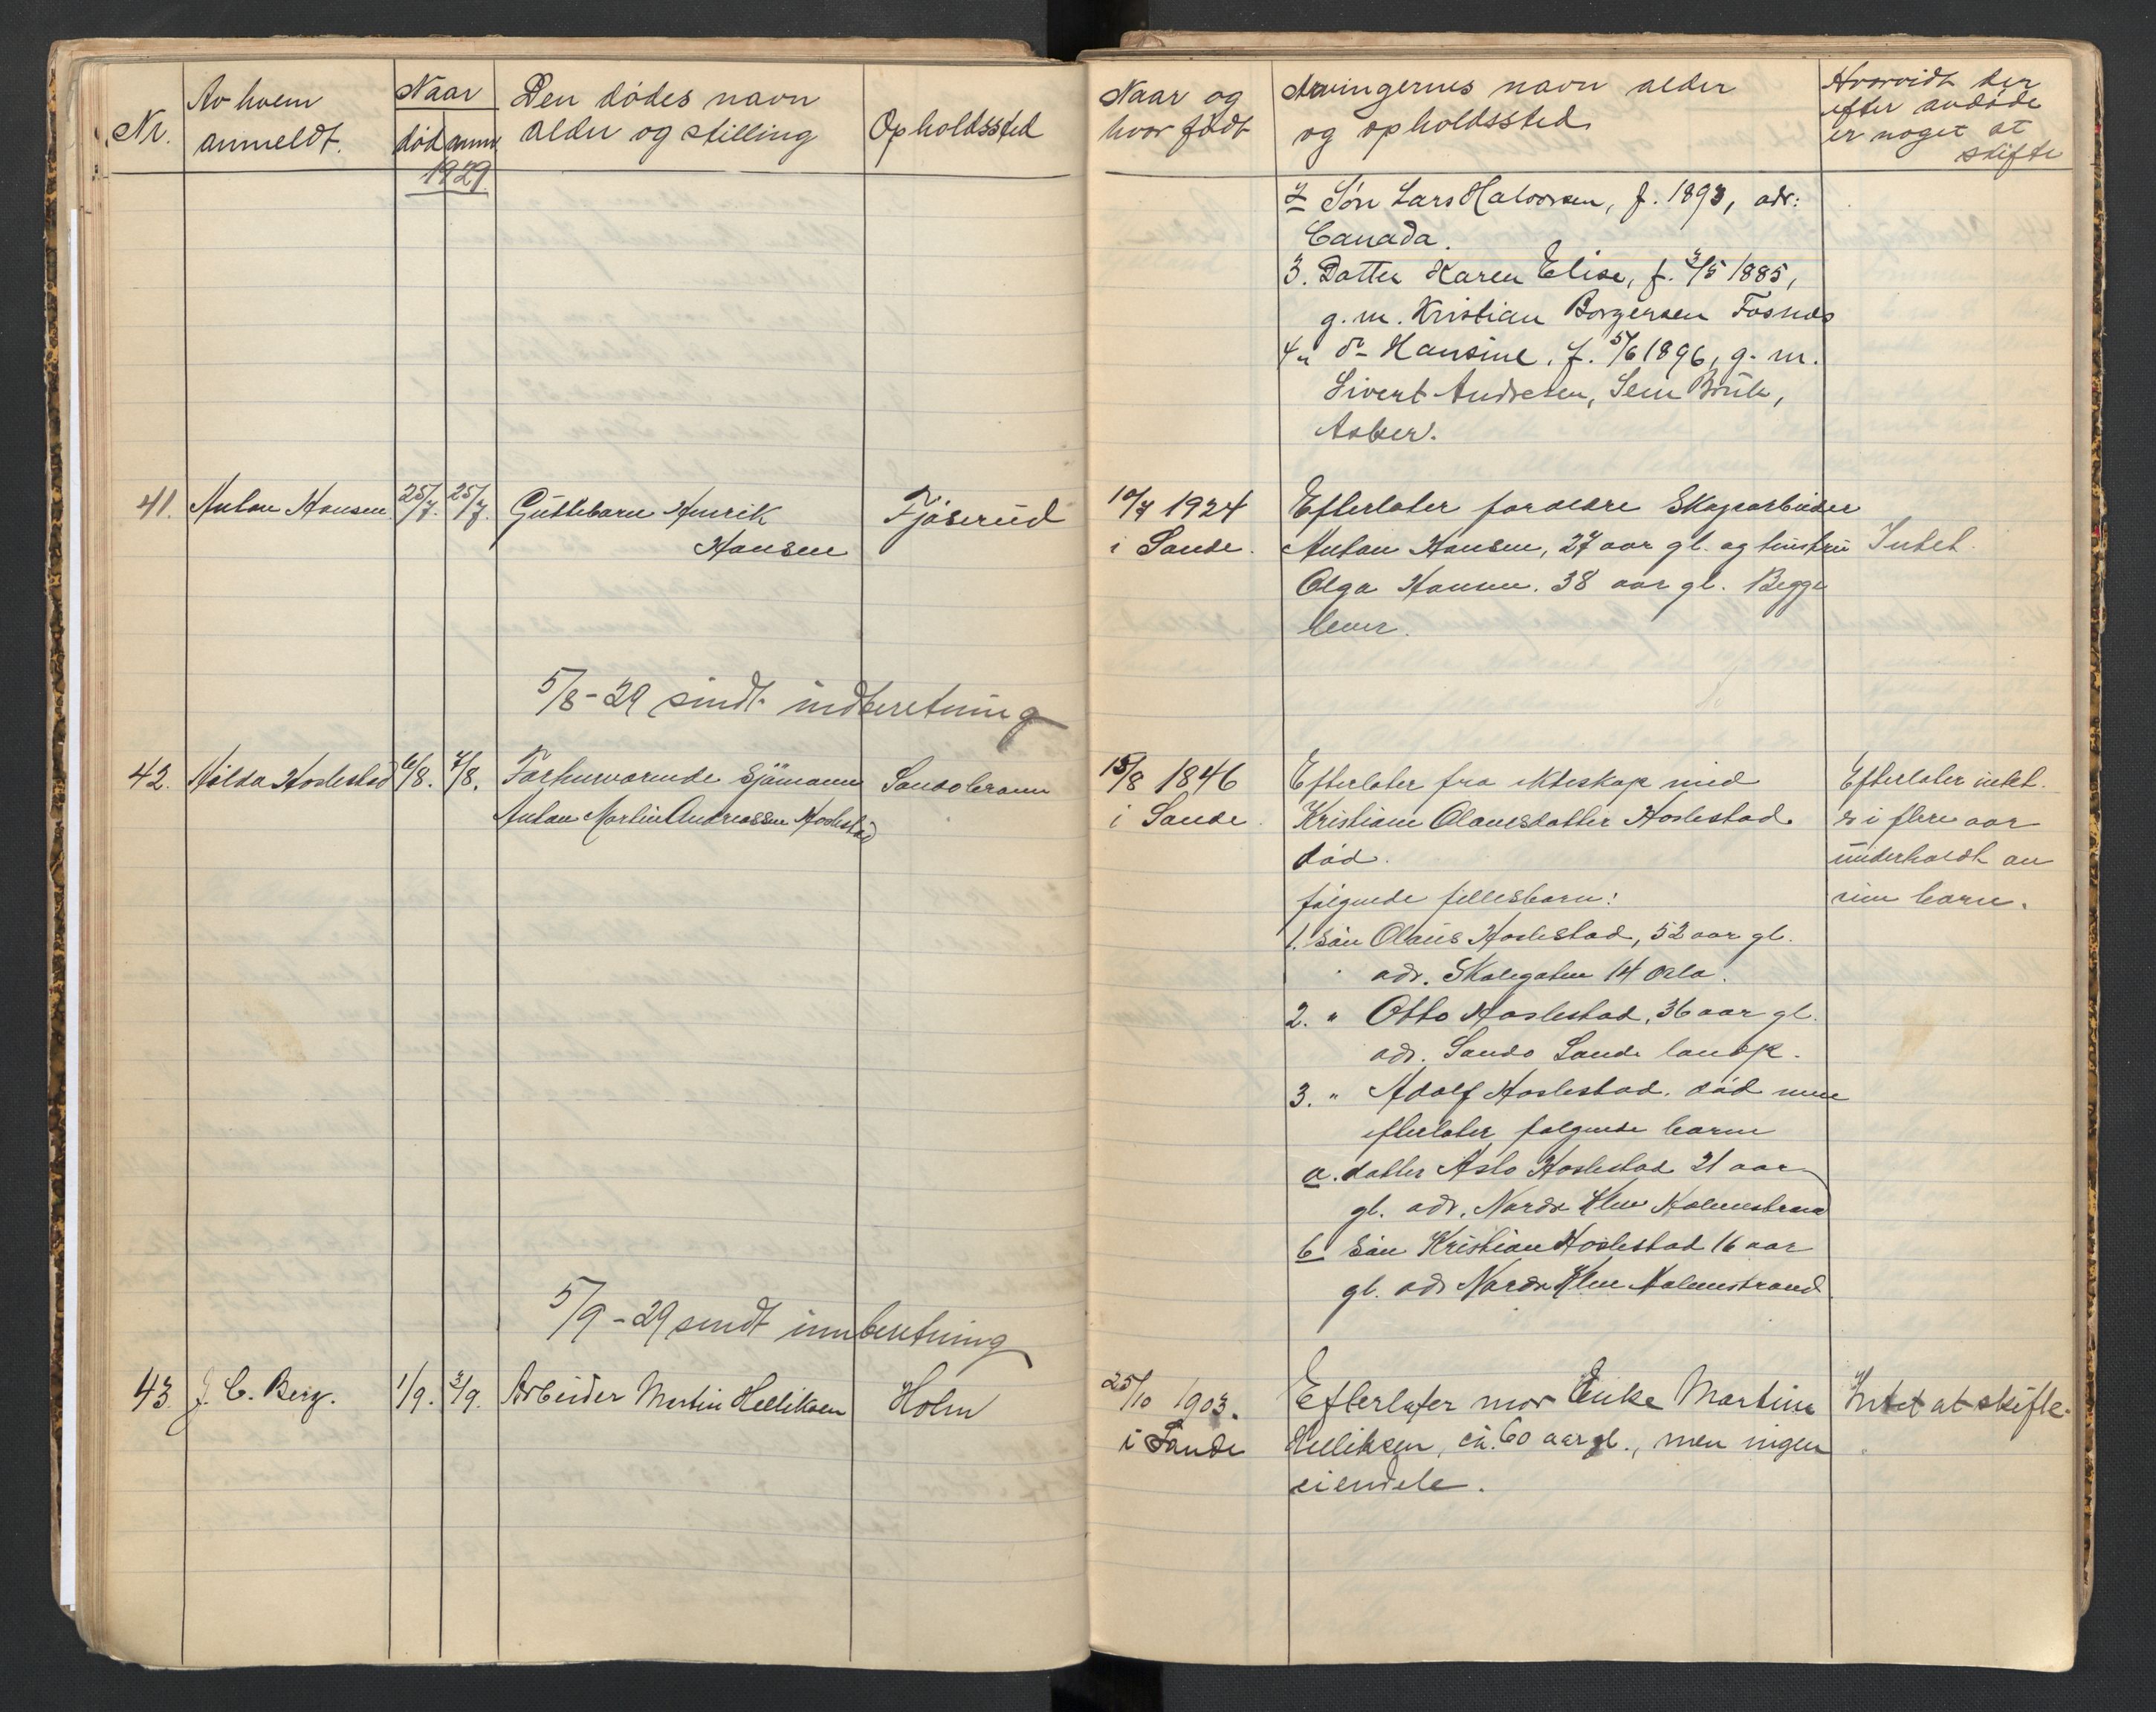 Nr.
Av hvem
anmeldt.
Naar
død anm.
1929.
Den dødes navn
alder og stilling
Opholdssted
Naar og
hvor født
Arvingernes navn alder
og opholdssted
Hvorvidt der
efter avdøde
er noget at
skifte
2 Søn Lars Halvorsen, f. 1893, adr:
Canada.
3. Datter Karen Elise, f. 3/5 1885,
g. m. Kristian Borgersen Fosnæs
4 " do- Hansine, f. 5/6 1896, g. m.
Sivert Andresen, Sem Bruk,
Asker.
41. Anton Hansen 25/7. 25/7. Guttebarn Henrik
Hansen
Fjöserud
10/7 1924
i Sande.
Efterlater foreldre Skogsarbeider
Anton Hansen, 27 aar gl. og hustru
Olga Hansen. 38 aar gl. Begge
lever.
Intet.
5/8-29 sendt indberetning
42. Hilda Haslestad 6/8. 7/8. Forhenværende Sjömann
Anton Martin Andreassen Haslestad
Sandobrann
15/8 1846
i Sande.
Efterlater fra ekteskap med
Kristiane Olavesdatter Haslestad
död.
følgende fellesbarn:
1. Sön Olaus Haslestad, 52 aar gl.
adr. Skolegaten 14 Oslo.
2. " Otto Haslestad, 36 aar gl.
adr. Sando Sande landp.
3. " Adolf Haslestad. död men
efterlater følgende barn
a. datter Aslo Haslestad 21 aar
gl. adr. Nordre Holmestrand
b Sön Kristian Haslestad 16 aar
gl. adr Nordre Holmestrand
Efterlater intet.
er i flere aar
underholdt av
sine barn.
5/9-29 sendt innberetning
43. J. C. Berg. 1/9. 3/9. Arbeider Martin Helliksen
Holm
25/10 1903.
i Sande
Efterlater mor Enke Martine
Helliksen, ca. 60 aar gl., men ingen
eiendele.
Intet at skifte.